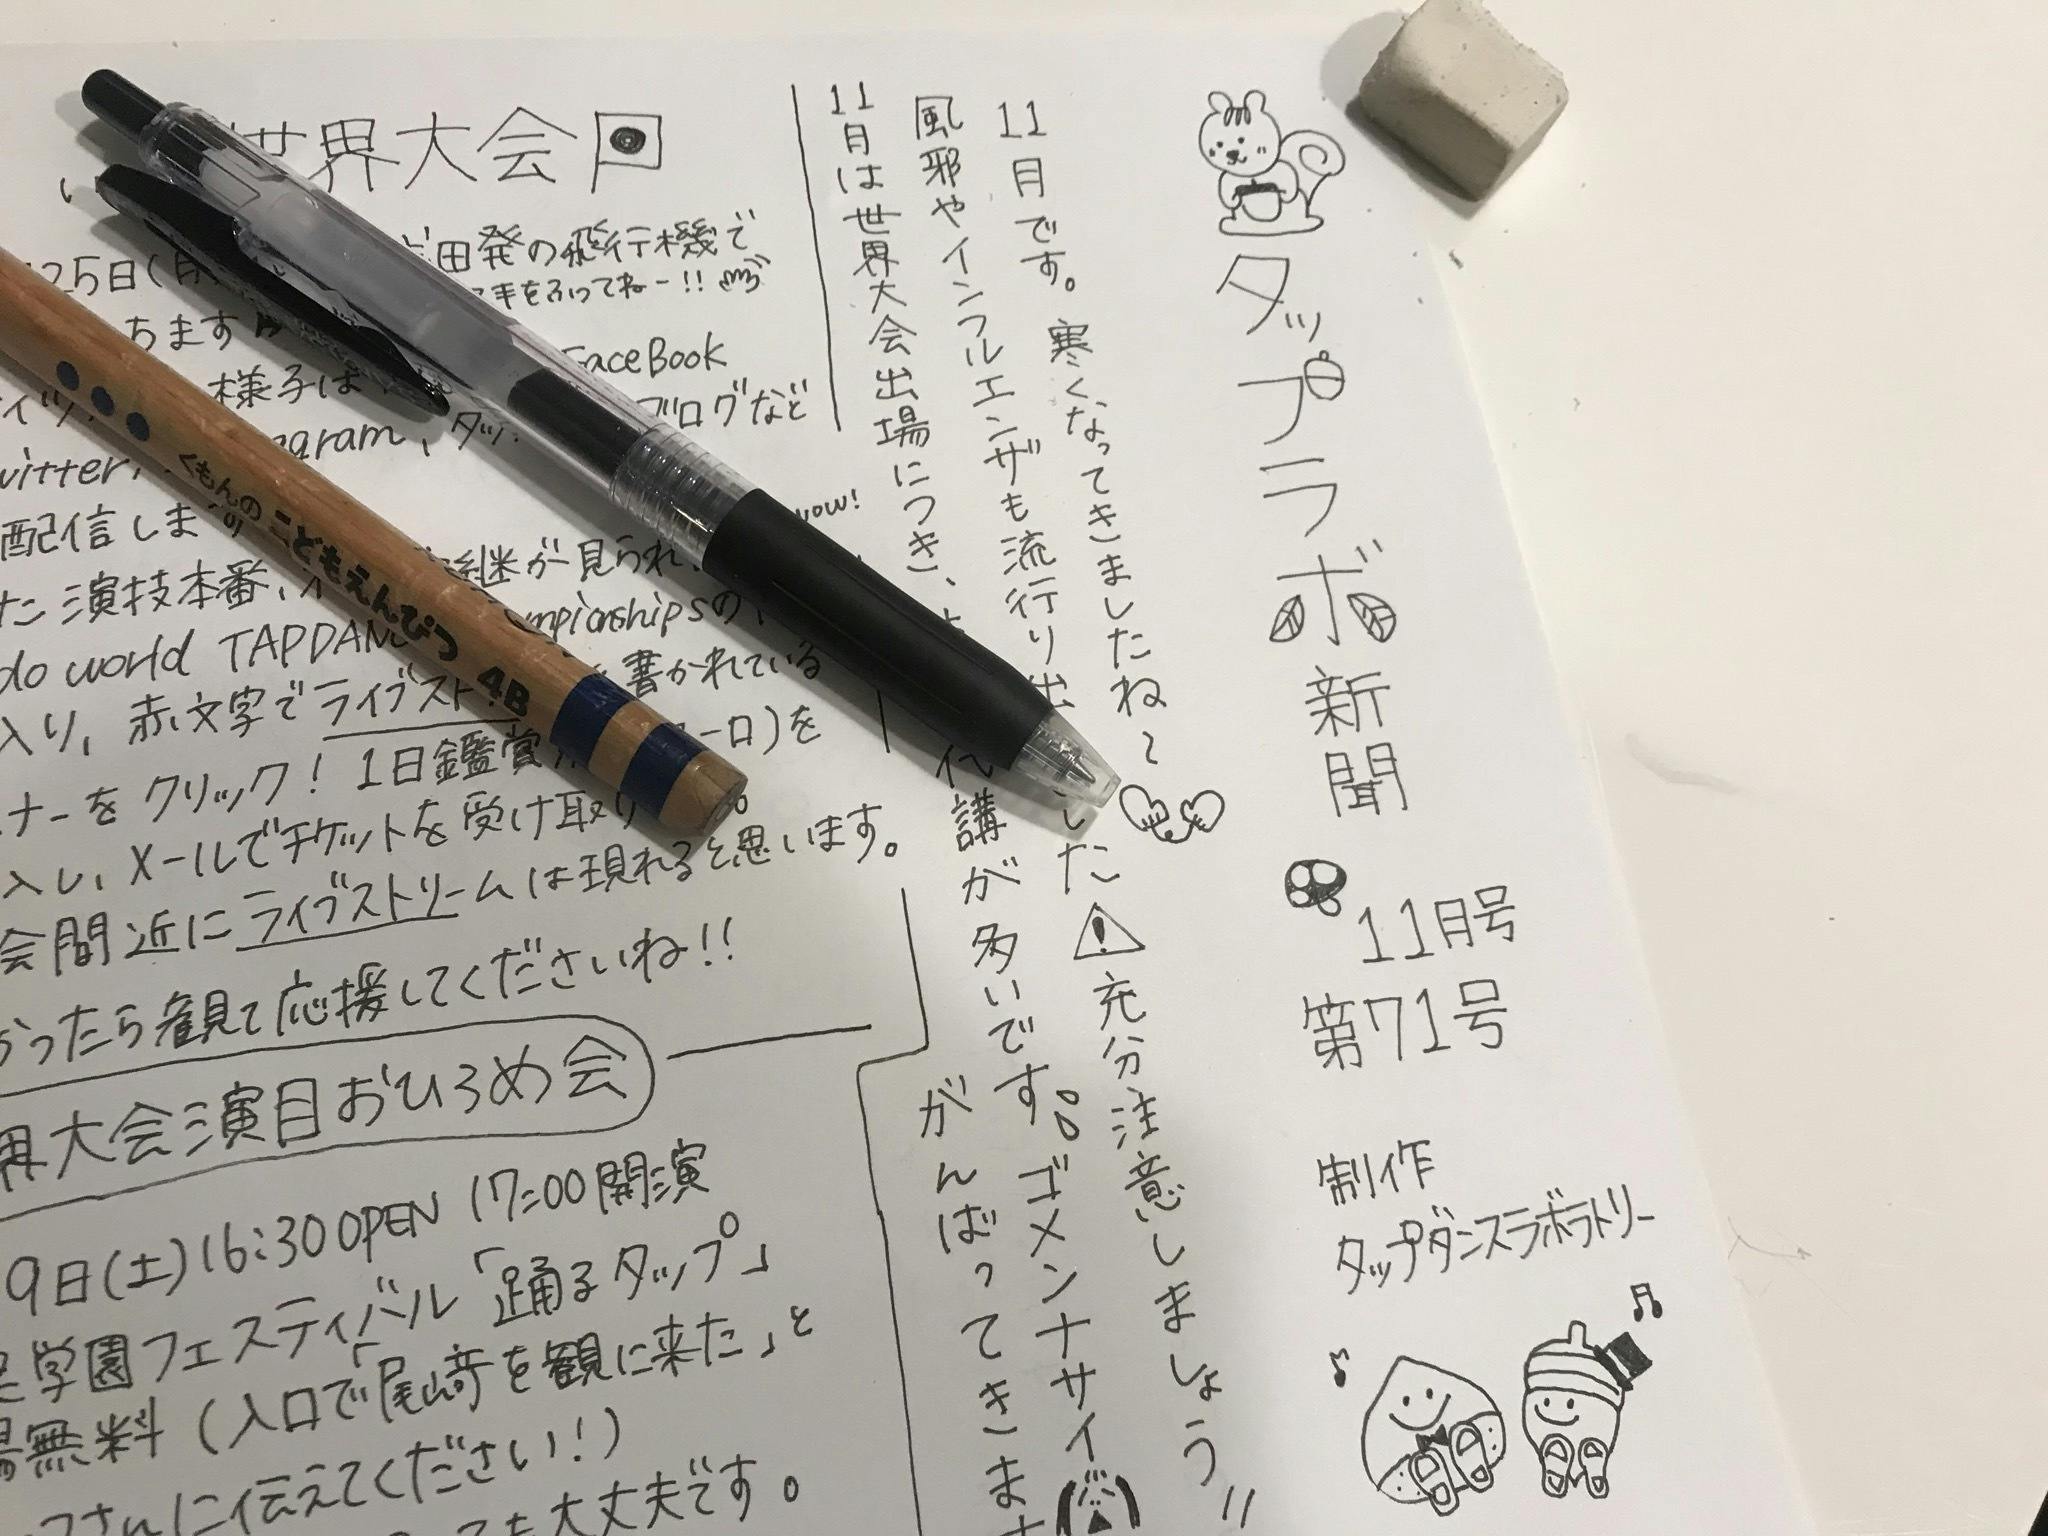 タップラボ新聞
11月号
第71号
制作
タップダンスラボラトリー
11月です。寒くなってきましたね〜
風邪やインフルエンザも流行り出した 充分注意しましょう"
11月は世界大会出場につき、
代講が多いです。ゴメンナサイ
がんばってきます
世界大会
25日(月 田発の飛行機で
手をふってねー!!
ちます
様子は FaceBook
gram、タッ ブログなど
witter,
配信しま
た演技本番、 継が見られ now!
do world TAPDAN mpionshipsの
入り、赤文字でライブスト 書かれている
ナーをクリック!1日鑑賞 ーロ)を
入し、メールでチケットを受け取り
会間近にライブストリームは現れると思います。
かったら観て応援してくださいね!!
界大会演目おひろめ会
9日(土)16:30OPEN 17:00開演
学園フェスティバル「踊るタップ」
場無料(入口で「尾崎を観に来た」と
さんに伝えてください!)
も大丈夫です。
くもんの こどもえんぴつ 4B